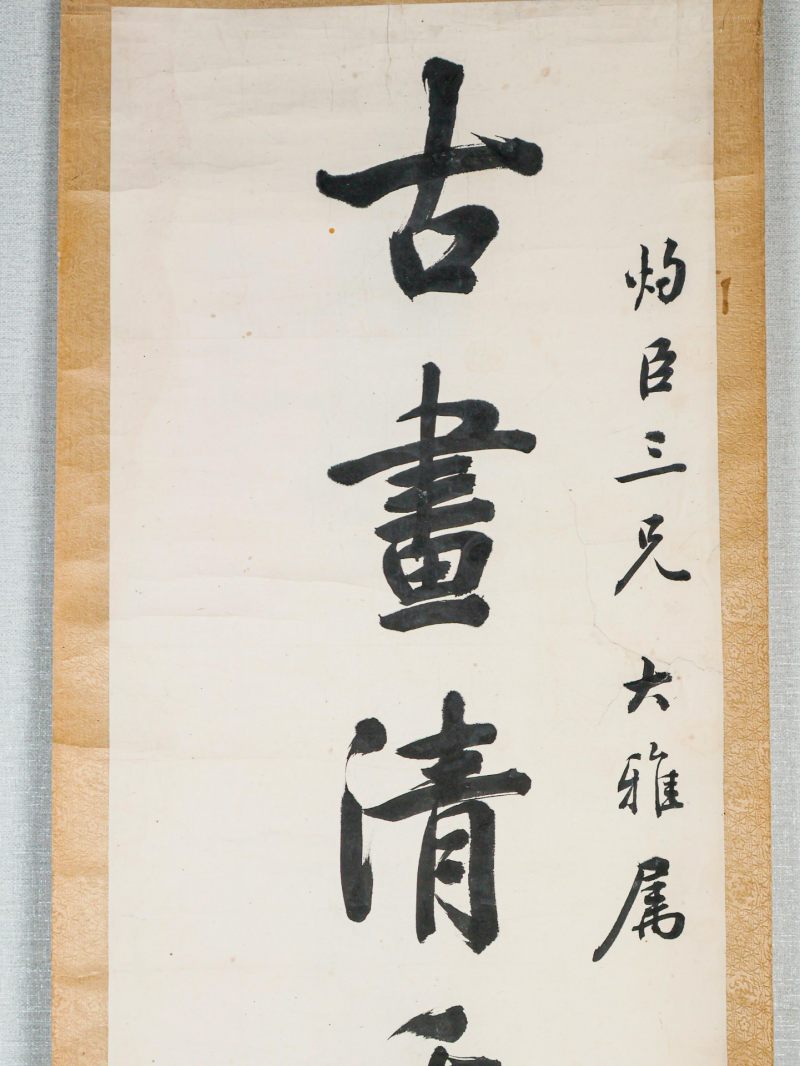 灼臣三兄大雅属
古畫清